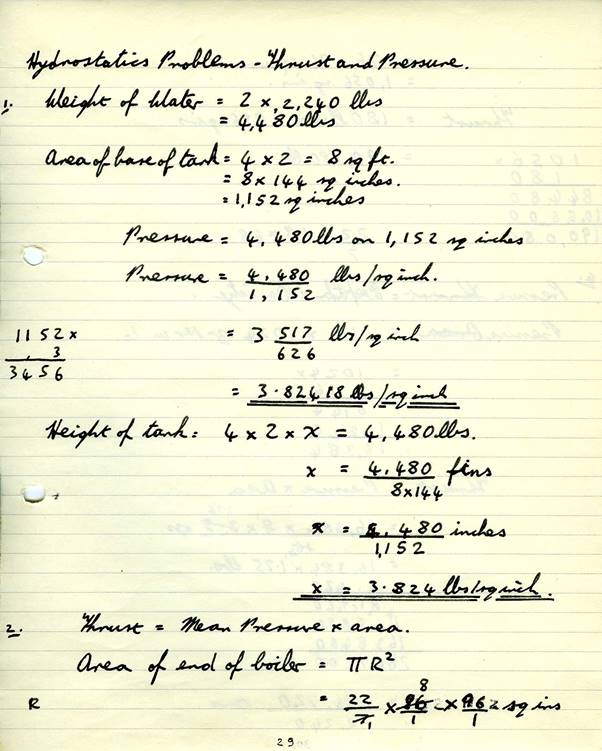 Hydrostatics Problems - Thrust and Pressure.
1. Weight of Water = 2 x 2,240 lbs
= 4,480 lbs
Area of base of tank = 4 x 2 = 8 sq ft.
= 8 x 144 sq inches.
= 1,152 sq inches
Pressure = 4,480 lbs on 1,152 sq inches
Pressure = 4,480 / 1,152 lbs/sq inch.
1152 x
3
3456
= 3 517/626 lbs/sq inch
= 3.82418 lbs/sq inch
Height of tank: 4 x 2 x x = 4,480 lbs.
x = 4,480 / 8x144 ft ins
x = 4,480 / 1,152 inches
x = 3.824 lbs/sq inch.
2. Thrust = Mean Pressure x area.
Area of end of boiler = πR²
R
= 22/7 x 8 /1 x /1 sq ins
29